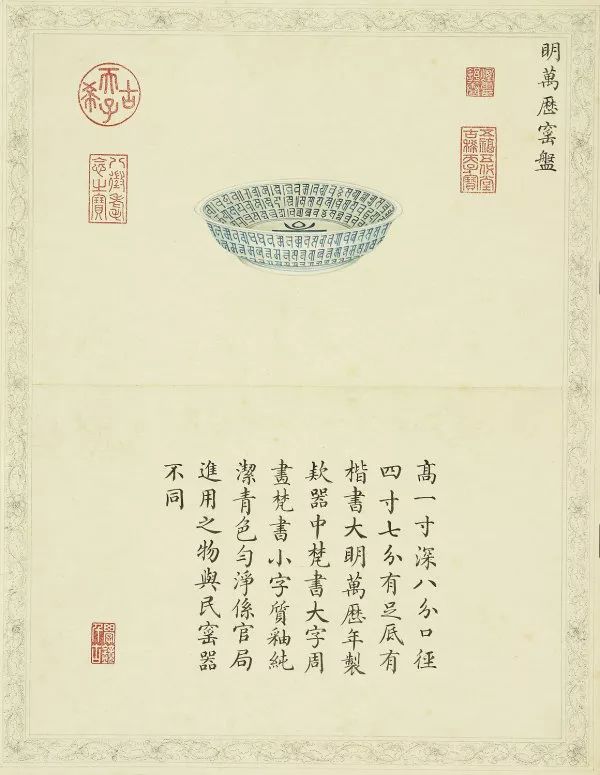 明萬歷窰盤
五福五代堂
古稀天子寶
古希天子
八徵耄
念之寶
高一寸深八分口徑
四寸七分有足底有
楷書大明萬歷年製
欵器中梵書大字周
畫梵書小字質釉純
潔青色勻淨係官局
進用之物與民窰器
不同